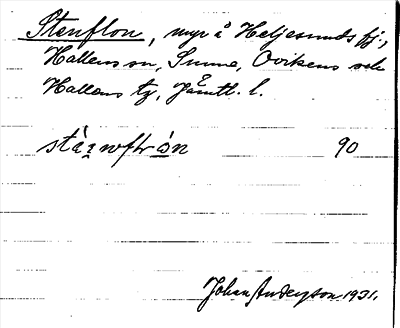 Stenflon, myr å Heljesunds fj.,
Hallens sn, Sunne, Ovikens och
Hallens tg, Jämtl. l.
90
Johan Anderzson 1931.